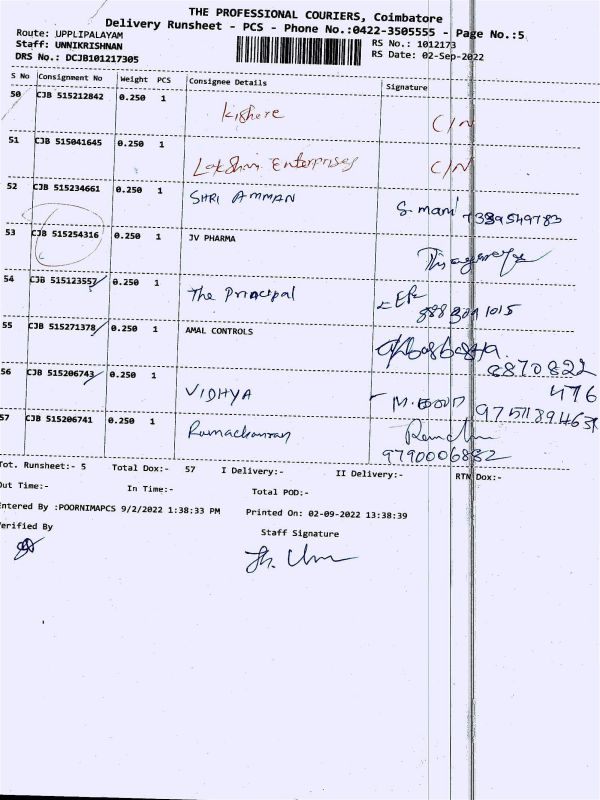 THE PROFESSIONAL COURIERS, Coimbatore
Delivery Runsheet - PCS - Phone No.:0422-3505555 - Page No.:5
Route: UPPLIPALAYAM
Staff: UNNIKRISHNAN
DRS No.: DCJB101217305
RS No.: 1012173
RS Date: 02-Sep-2022
S No Consignment No Weight PCS Consignee Details Signature
50 CJB 515212842 0.250 1 Kishore C/N
51 CJB 515041645 0.250 1 Lakshmi Enterprises C/N
52 CJB 515234661 0.250 1 SHRI AMMAN S. mani
53 CJB 515254316 0.250 1 JV PHARMA
54 CJB 515123557 0.250 1 The Principal
55 CJB 515271378 0.250 1 AMAL CONTROLS
8870822
476
56 CJB 515206743 0.250 1 VIDHYA
57 CJB 515206741 0.250 1 Ramachanran
9790006882
Tot. Runsheet:- 5 Total Dox:- 57 I Delivery:- II Delivery:- RTN Dox:-
Out Time:- In Time:- Total POD:-
Entered By :POORNIMAPCS 9/2/2022 1:38:33 PM Printed On: 02-09-2022 13:38:39
Verified By Staff Signature